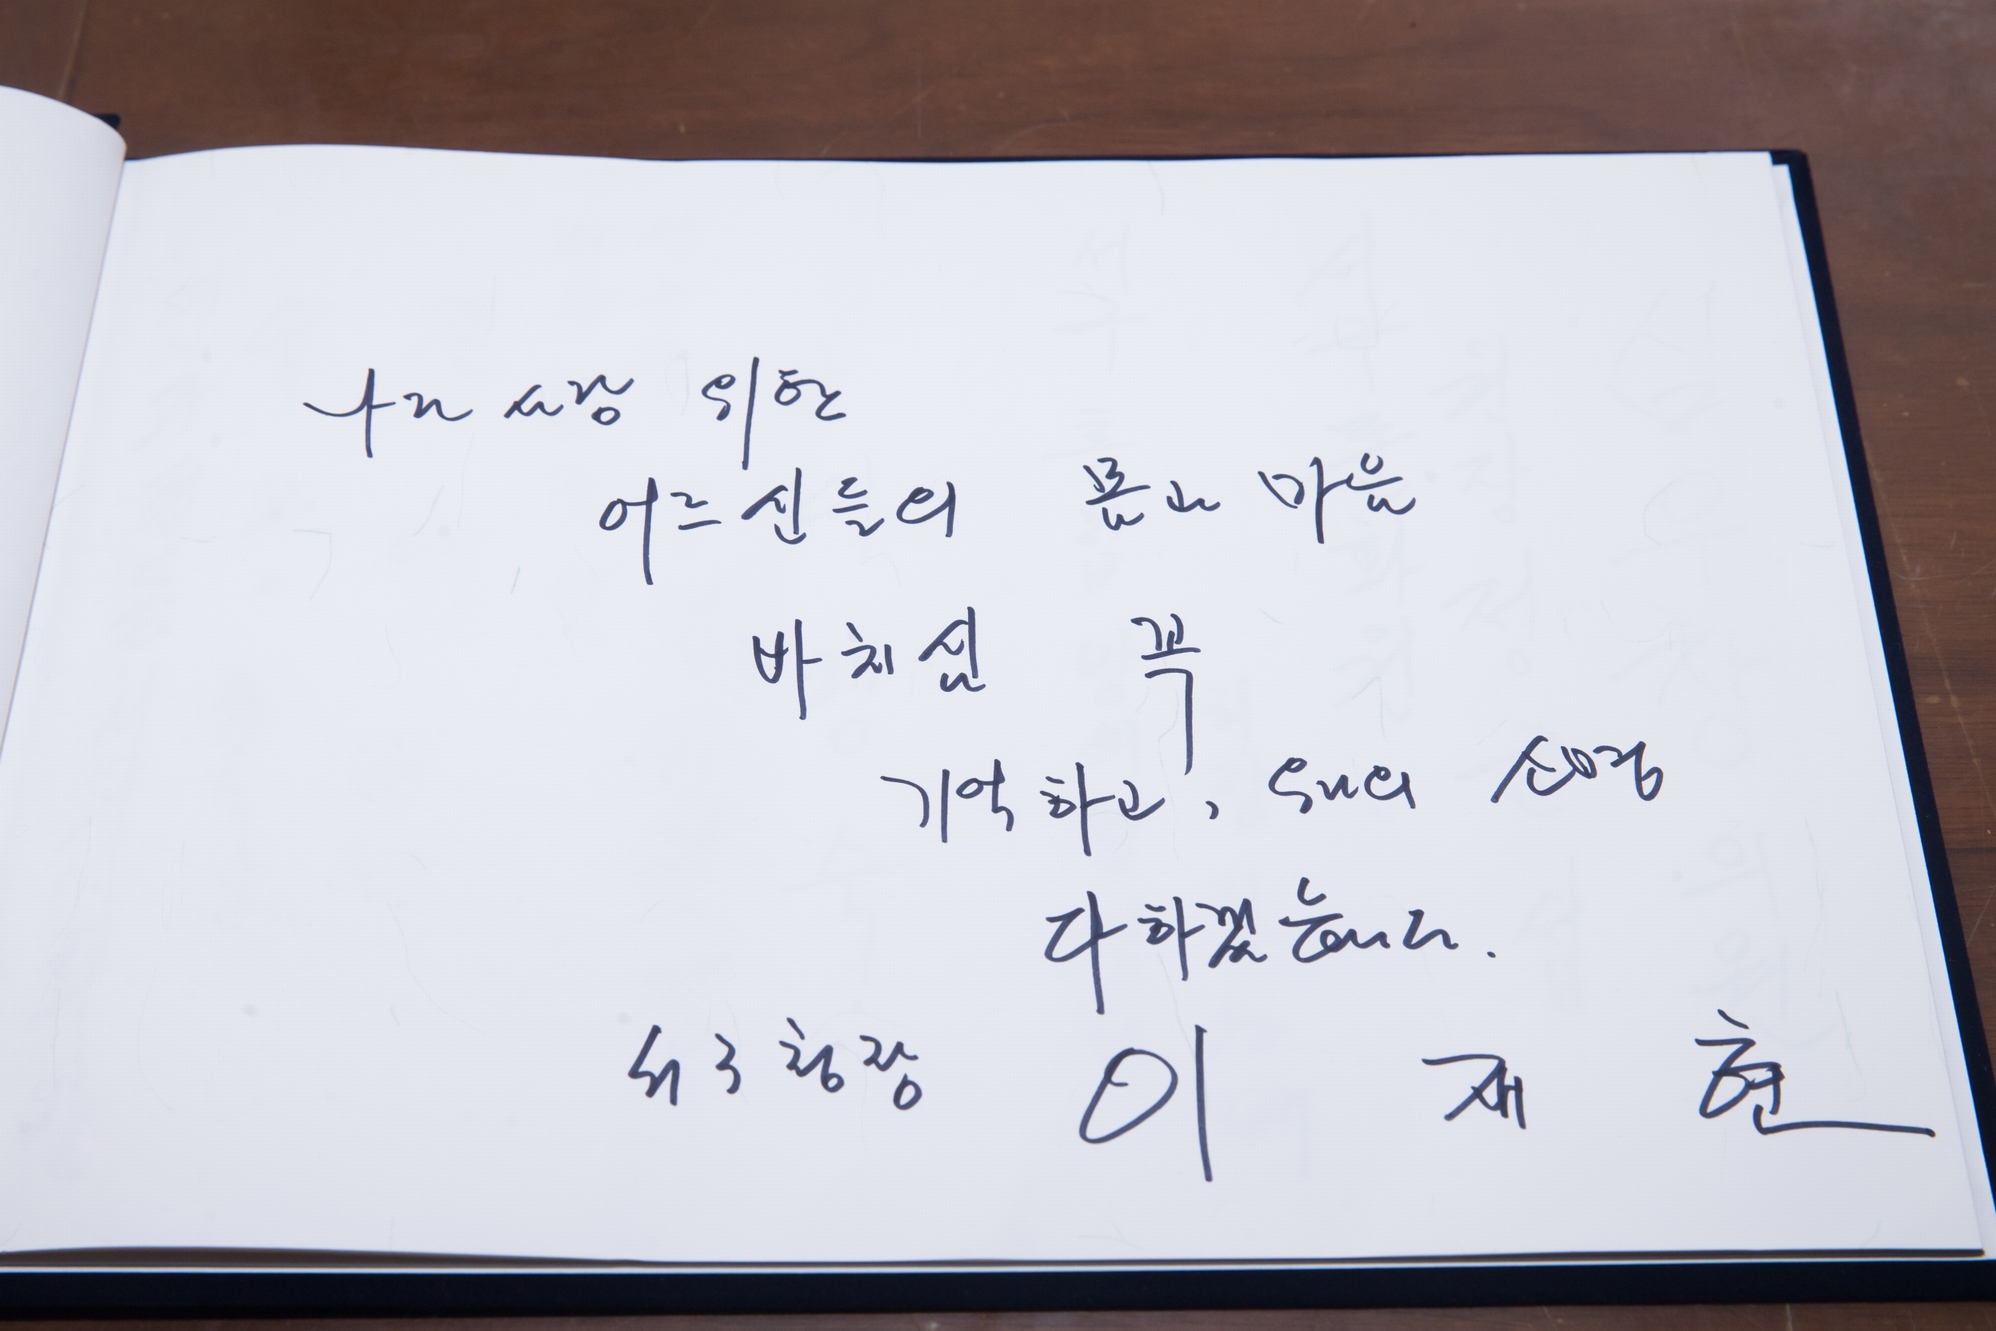 나라 사랑 위한
어르신들의 몸과 마음
바치심 꼭
기억하고, 우리의
다하겠습니다.
서구청장 이 재 현